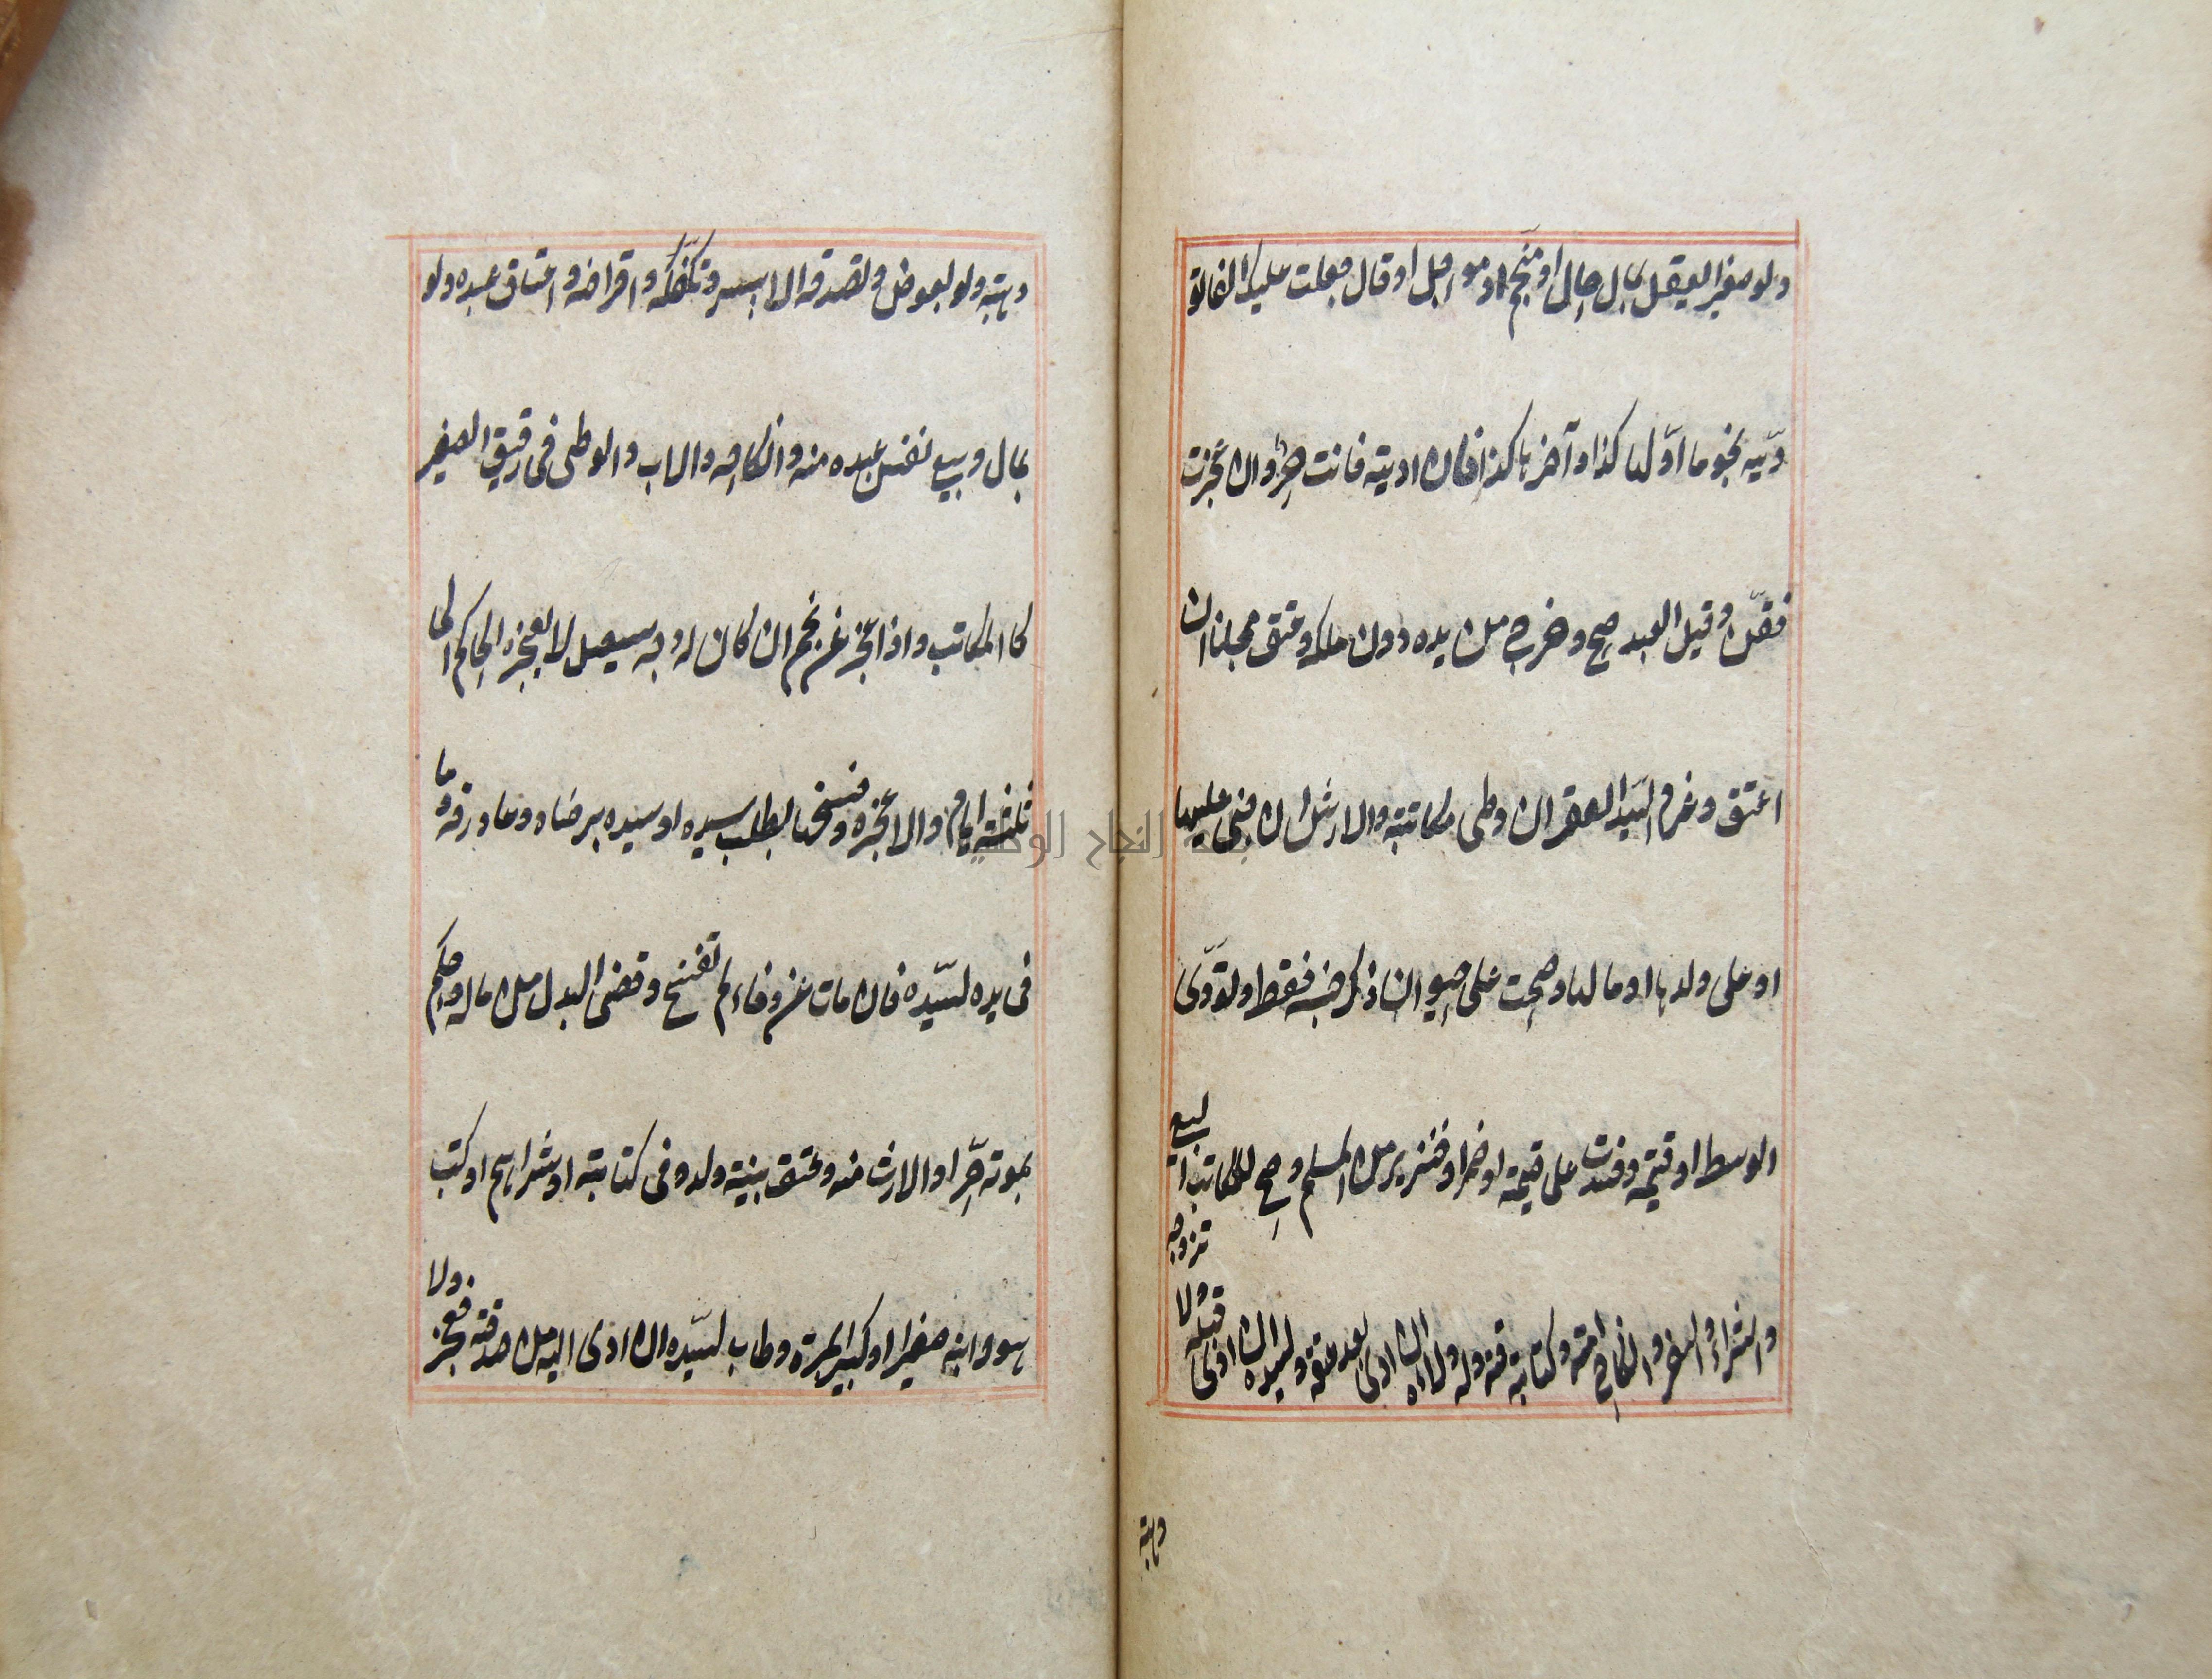 ولو صغيرا يعقل بمال حال او منجم او مؤجل او قال جعلت عليك الفا تؤ
دّيه نجوما اوّلها كذا وآخرها كذا فان اديته فانت حرّ وان عجزت
فقنّ وقبل العبد صح وخرج من يده دون ملكه وعتق مجانا ان
اعتق وغرم السيّد العقر ان وطى مكاتبته والارش ان جنى عليها
او على ولدها او مالها وصحت على حيوان ذكر جنسه فقط او لؤدّى
الوسط او قيمته وفسدت على قيمة او خمر او خنزير من المسلم وصح للمكاتب البيع
والشراء والسفر وانكاح امته وكتابة قنه وله ولاؤه ان ادى بعد عتقه ولسيده ان ادى قبله ولا تزوجه
وهبة
وهبته ولو بعوض وتصدقه الا بيسير وتكفّله واقراضه واعتاق عبده ولو
بمال وبيع نفس عبده منه وانكاحه والاب والوصى فى رقيق الصغير
كالمكاتب واذا عجز عن نجم ان كان له وجه سيصل لا يعجزه الحاكم الى
ثلثة ايام والا عجزه وفسخها بطلب سيده او سيده برضاه وعاد رقه وما
فى يده لسيّده فان مات عن وفاء لم تفسخ وقضى البدل من ماله وحكم
بموته حرّا والارث منه وعتق بنيه ولدو فى كتابته او شراهم او كتب
هو وابنه صغيرا او كبيرا بمرة وطاب لسيّده ان ادى اليه من صدقة فعجز ولا
النجاح الوطنية